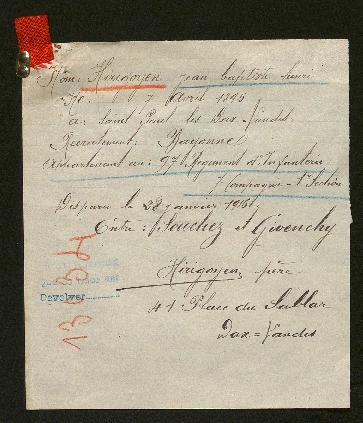 Nom: Hourigoyen jean baptiste henri
Né: 7 Avril 1895
à: Saint Paul les Dax - Landes.
Recrutement: Bayonne
Appartenant au: 97e Régiment d'Infanterie
7 Compagnie - 1e Section
Disparu le 28 janvier 1916
Entre: Souchez et Givenchy
Hirigoyen, père
41: Place du Sablar
Dax = Landes
Devolver